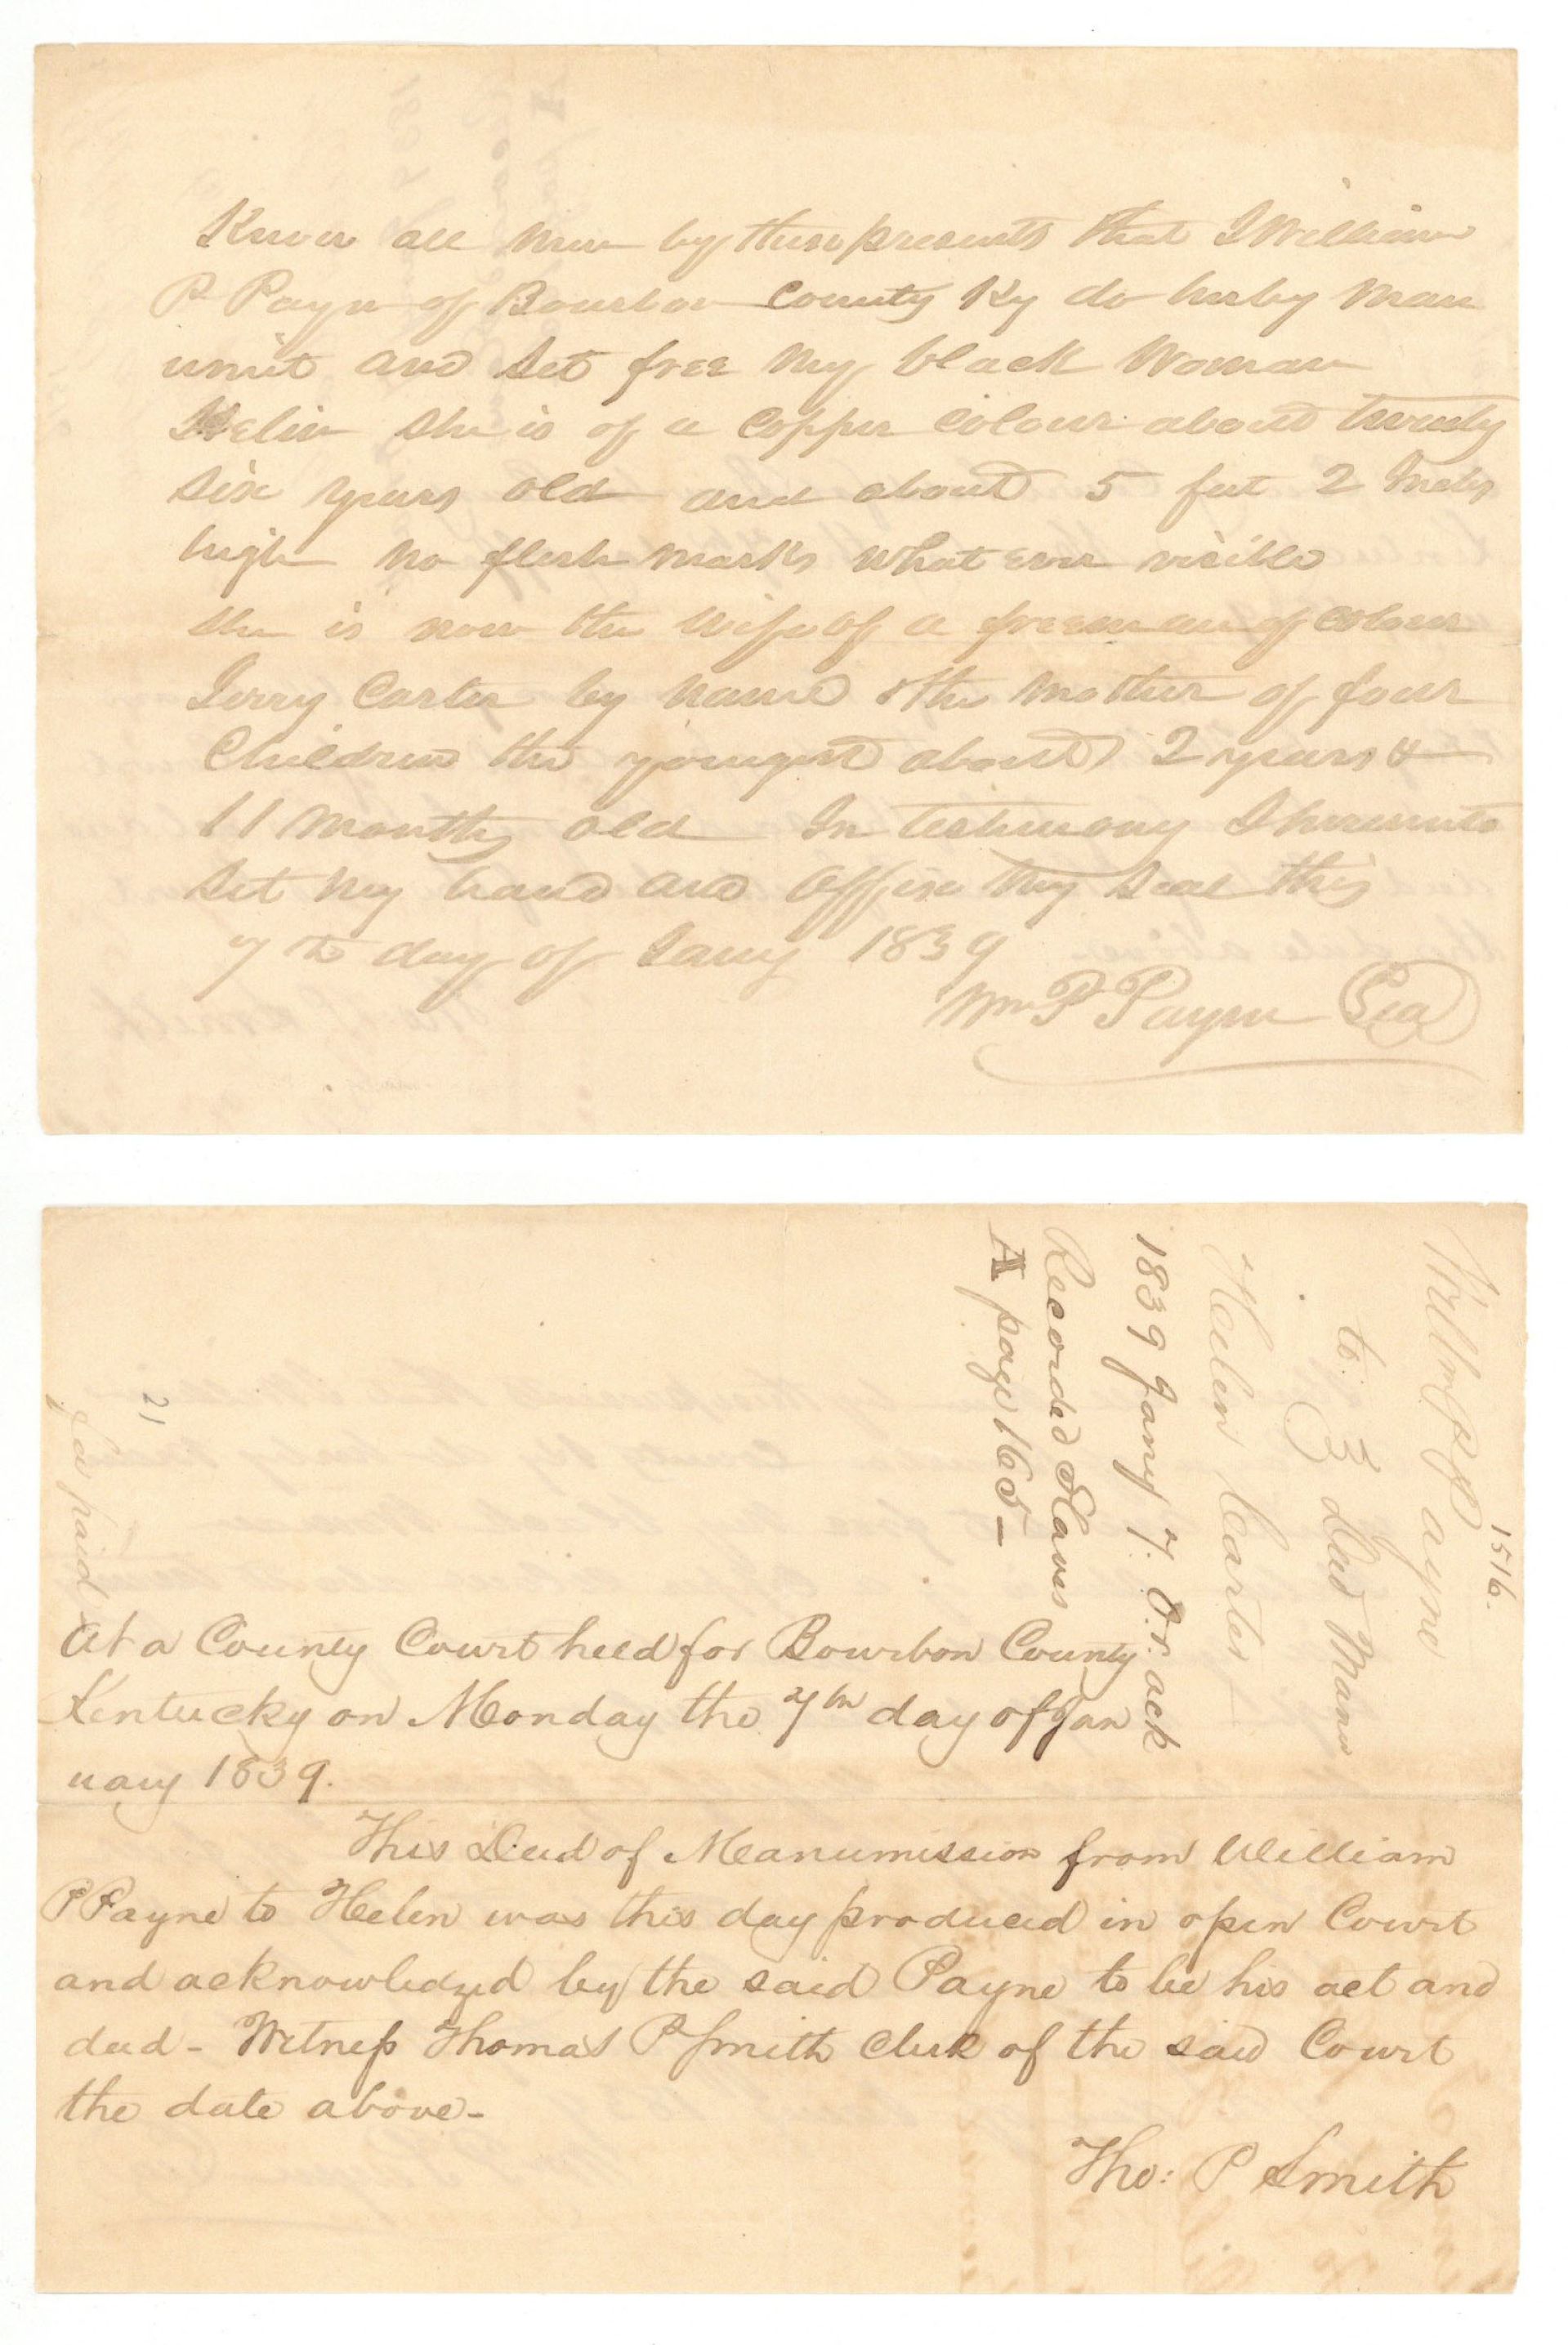 Know all men by these presents that I William
P Payne of Bourbon County Ky do herby Man
umit and set free my black Woman
Helin She is of a Copper Colour about twenty
six years old and about 5 feet 2 Inches
high no flesh marks what ever visible
she is now the wife of a freeman of colour
Jerry Carter by name & the mother of four
Children the youngest about 2 years &
11 months old In testimony I hereunto
set my hand and affix my seal this
7th day of Jany 1839
Wm P Payne Seal
1516.
Will'm P Payne
to. } Deed Manu
Helen Carter
1839 Jany 7. Or. ack
Recorded Slaves
A page 165 –
21
fee paid
At a County Court held for Bourbon County
Kentucky on Monday the 7th day of Jan
uary 1839.
This Deed of Manumission from William
P Payne to Helen was this day produced in open Court
and acknowledged by the said Payne to be his act and
deed - Witness Thomas P Smith Clerk of the said Court
the date above -
Tho: P Smith